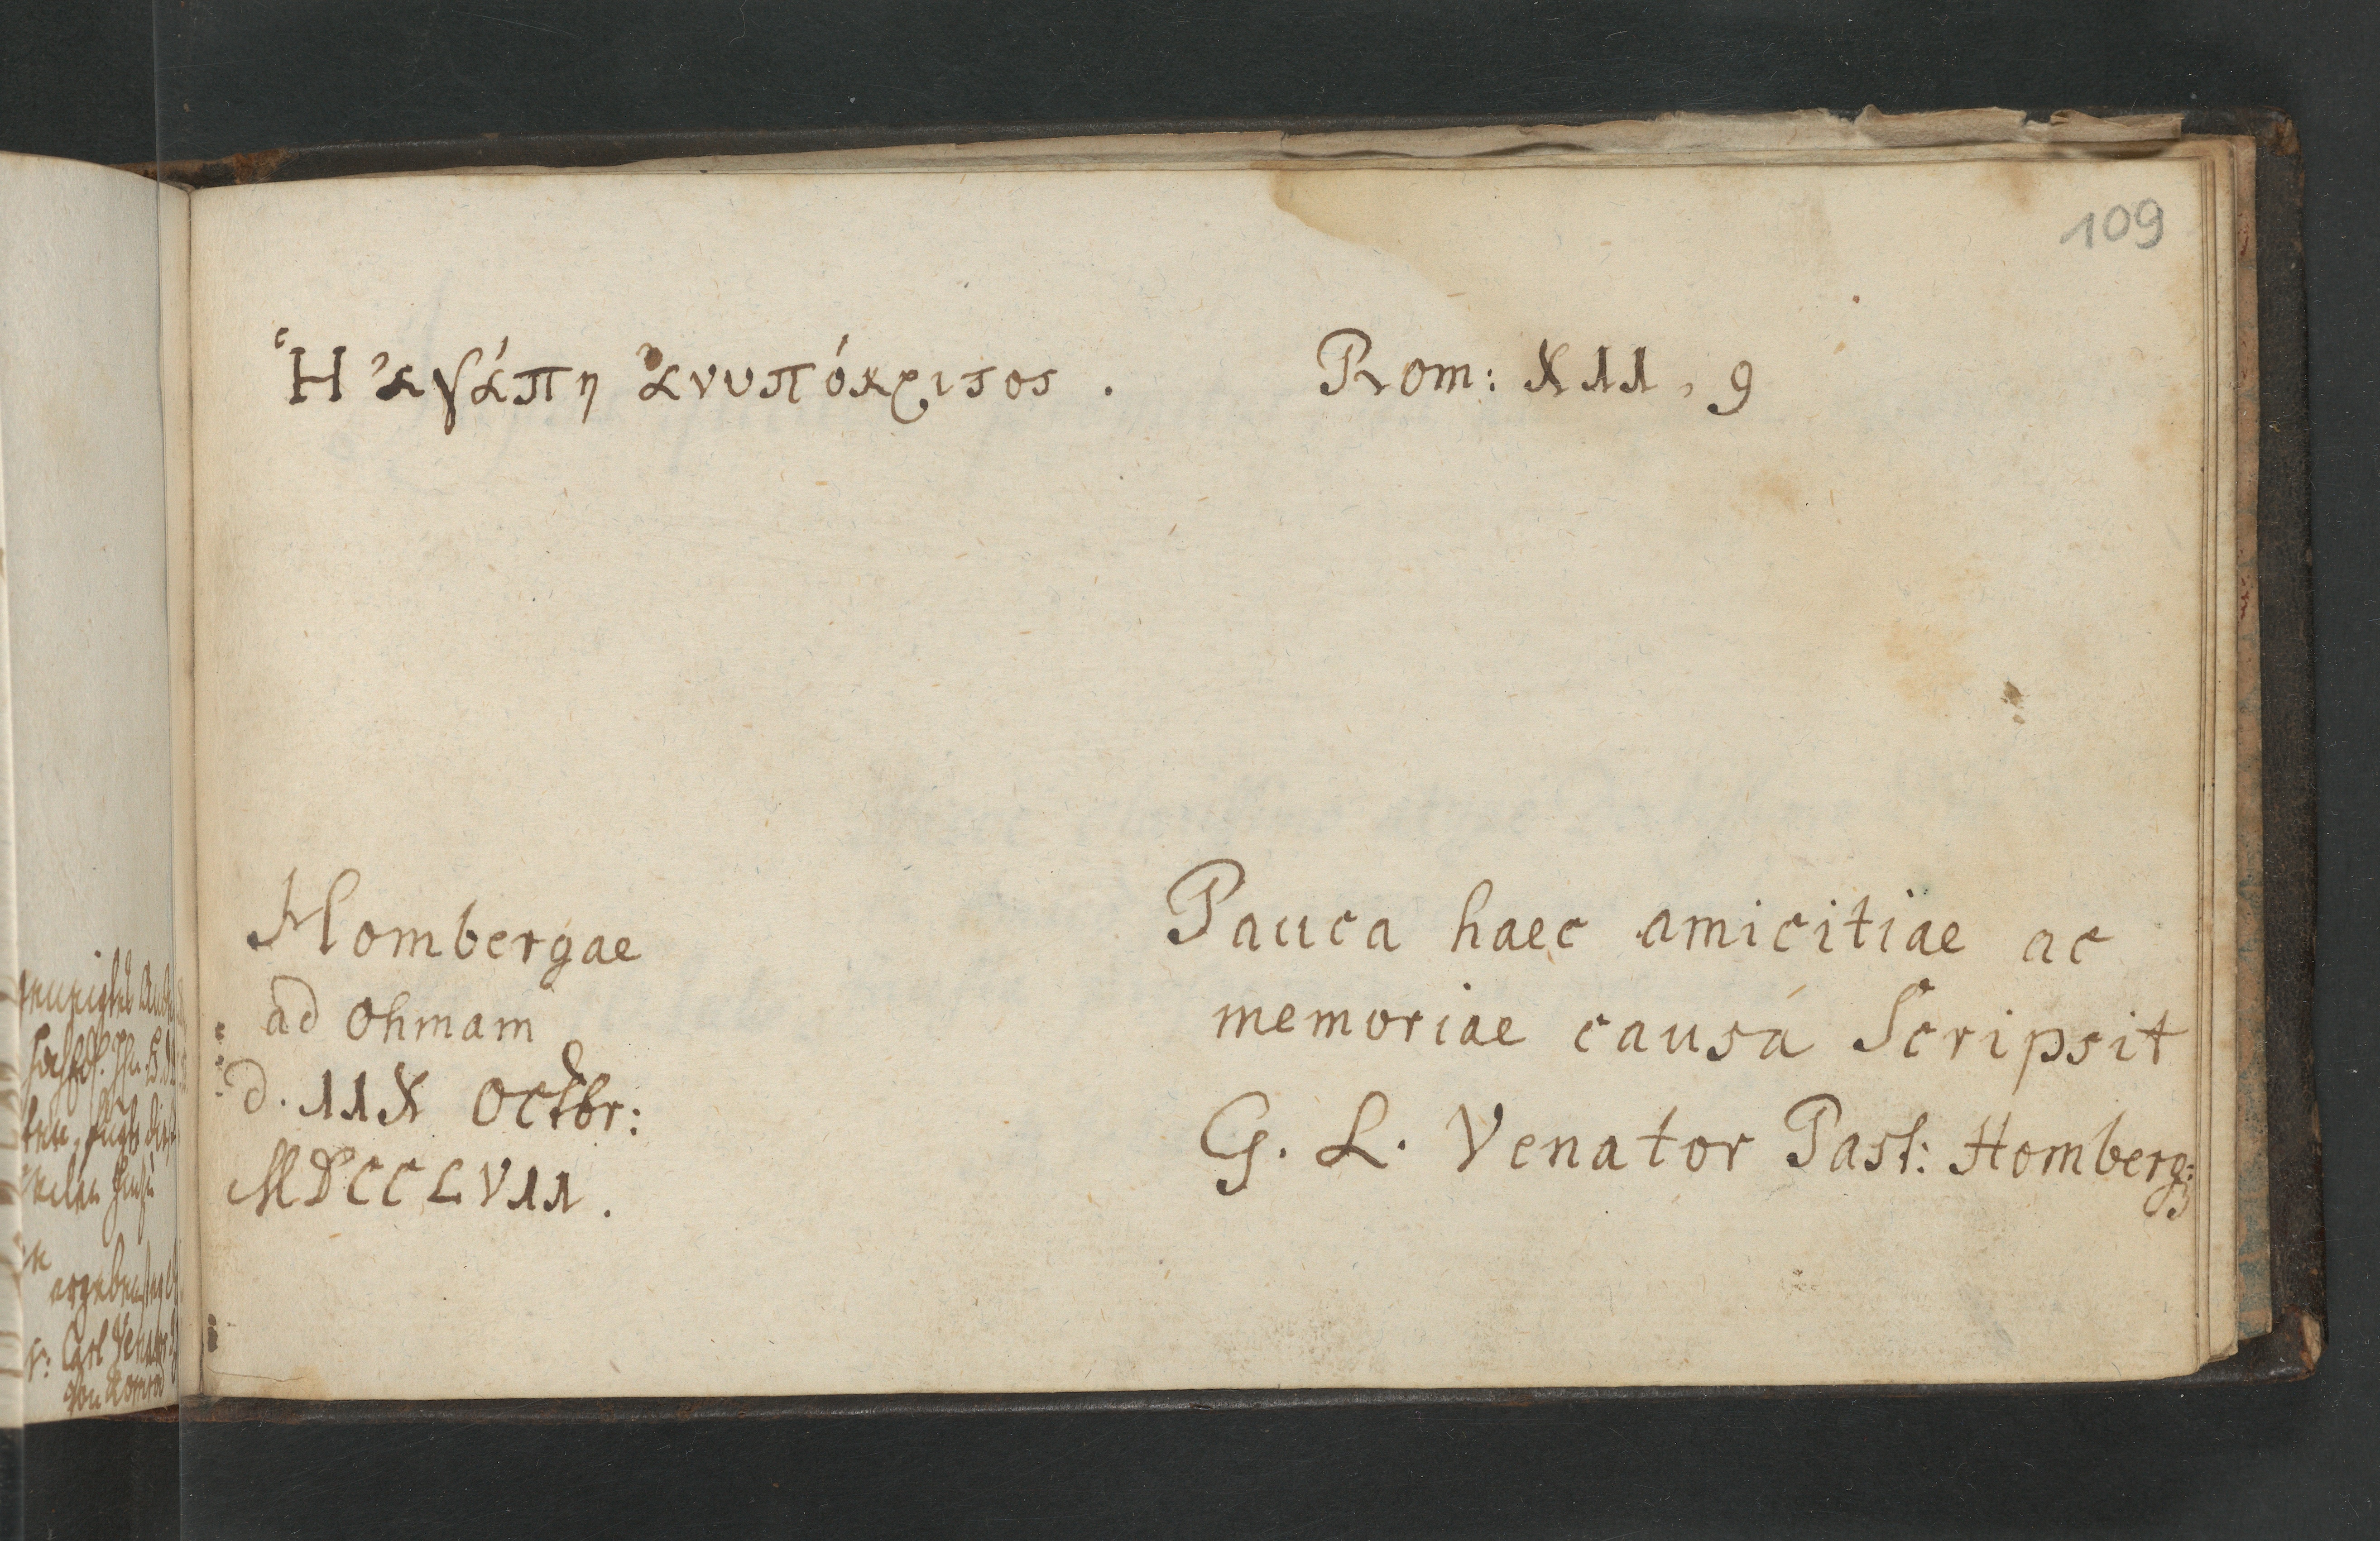 109
Ἡ ἀγάπη ἀνυπόκριτος. Rom: XII, 9
Hombergae
ad Ohmam
d. IIX Octbr:
MDCCLVII.
Pauca haec amicitiae ac
memoriae causâ Scripsit
G. L. Venator Past: Homberg: